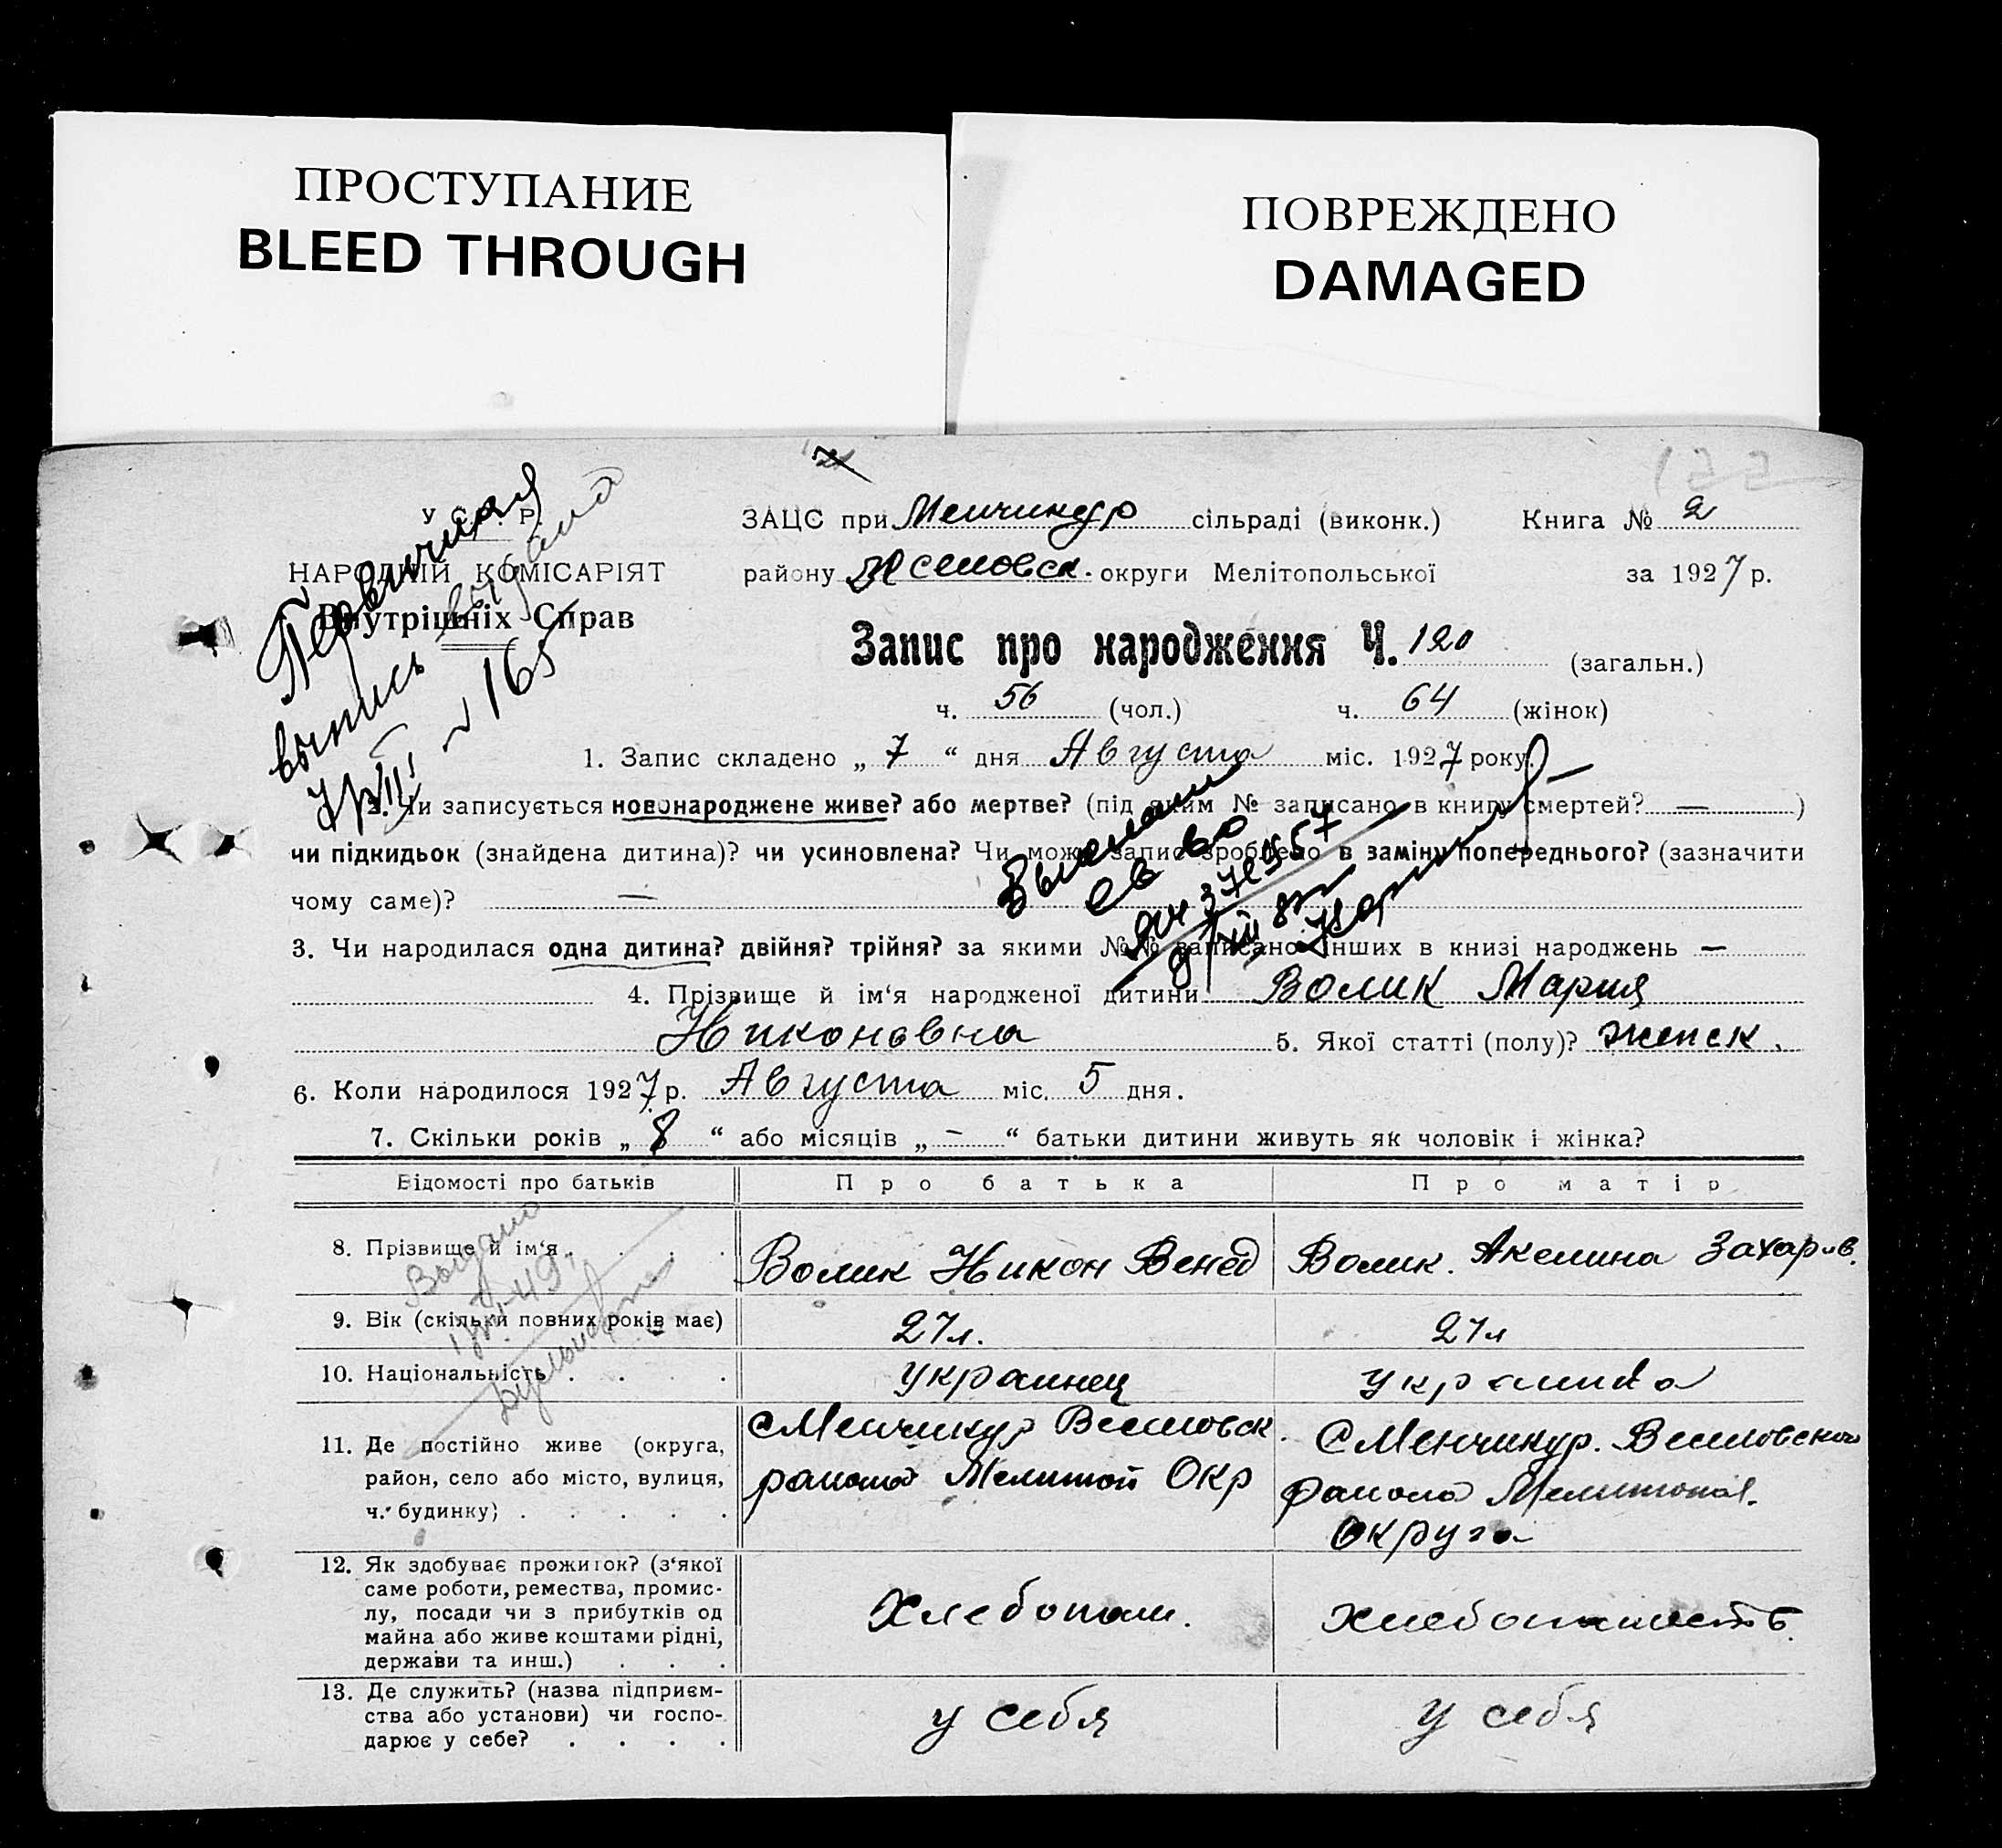 ПРОСТУПАНИЕ
BLEED THROUGH
ПОВРЕЖДЕНО
DAMAGED
122
У С. Р. Р.
НАРОДНІЙ КОМІСАРІЯТ
Внутрішніх Справ
Первичная
выпись выдано
№ 165
ЗАЦС при Менчикур сільраді (виконк.) Книга № 2
району округи Мелітопольської за 1927 р.
Запис про народження Ч. 120 (загальн.)
ч. 56 (чол.) ч. 64 (жінок)
1. Запис складено „ 7 “ дня Августа міс. 1927 року.
2. Чи записується новонароджене живе? або мертве? (під яким № записано в книгу смертей? — )
чи підкидьок (знайдена дитина)? чи усиновлена? Чи може запис зроблено в заміну попереднього? (зазначити
чому саме)? —
3. Чи народилася одна дитина? двійня? трійня? за якими №№ записано інших в книзі народжень —
4. Прізвище й ім‘я народженої дитини Волик Мария
Никоновна 5. Якої статті (полу)? женск.
6. Коли народилося 1927 р. Августа міс. 5 дня.
7. Скільки років „ 8 “ або місяців „ - “ батьки дитини живуть як чоловік і жінка?
Відомості про батьків Про батька Про матір
8. Прізвище й ім‘я . . . . Волик Никон Венед Волик. Акелина Захаров.
Выдано
9. Вік (скільки повних років має) 27 л. 27 л
10. Національність . . . . украинец украинка
11. Де постійно живе (округа,
район, село або місто, вулиця,
ч. будинку) . . . . .
с Менчикур Веселовск.
района Мелитоп Окр
с Менчикур. Веселовского
района Мелитопол.
округа
12. Як здобуває прожиток? (з‘якої
саме роботи, ремества, промис-
лу, посади чи з прибутків од
майна або живе коштами рідні,
держави та инш.) . . .
Хлебопаш.
хлебопашеств.
13. Де служить? (назва підприєм-
ства або установи) чи госпо-
дарює у себе? . . . .
у себя
у себя